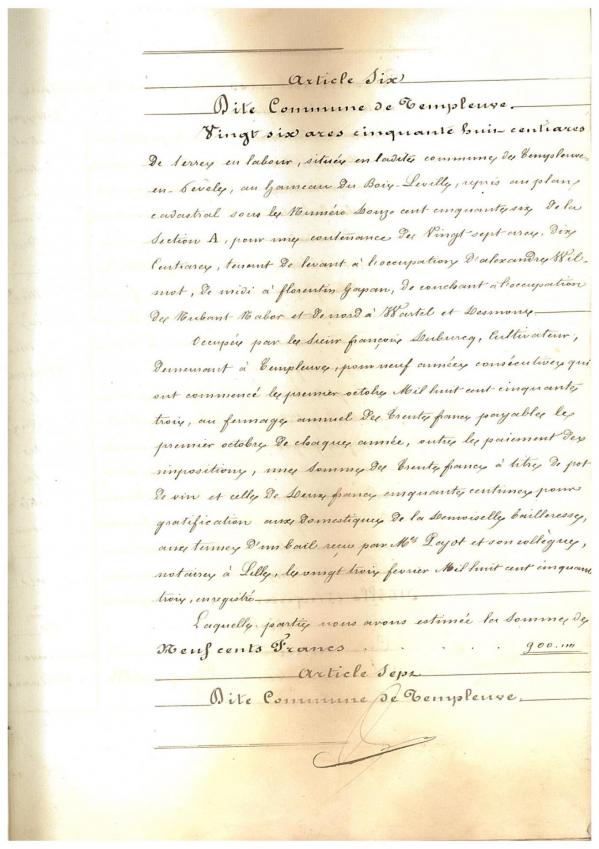 Article Six
Dite Commune de Templeuve.
Vingt six ares cinquante huit centiares
De terre en labour, située en ladite commune de Templeuve-
en-Pévèle, au hameau du Bois-Leville, repris au plan
cadastral sous le Numéro Douze cent cinquante six de la
Section A, pour une contenance de Vingt sept ares, dix
Centiares, tenant de levant à l'occupation d'alexandre Wil-
mot, de midi à florentin Gapan, de couchant à l'occupation
de Nubant Nabor et de nord à Wartel et Desmons.
Occupée par le Sieur françois Duburcq, Cultivateur,
Demeurant à Templeuve, pour neuf années consécutives qui
ont commencé le premier octobre Mil huit cent cinquante
trois, au fermage annuel de trente francs payables le
premier octobre de chaque année, outre le paiement des
impositions, une somme de trente francs à titre de pot
de vin et celle de Deux francs cinquante centimes pour
gratification aux domestiques de la Demoiselle bailleresse,
aux termes d'un bail reçu par Me Payot et son collègue,
notaires à Lille, le vingt trois février Mil huit cent cinquante
trois, enregistré
Laquelle partie nous avons estimée la somme de
Neuf cents Francs . . . . . 900.""
Article Sept
Dite Commune de Templeuve.